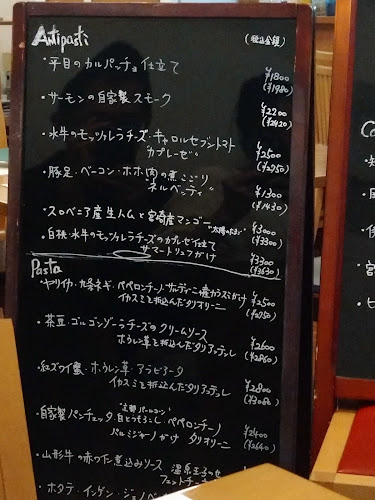 Antipasti (税込金額)
・平目のカルパッチョ仕立て
¥1800
(¥1980)
・サーモンの自家製スモーク
¥2200
(¥2420)
・水牛のモッツァレラチーズ・キャロルセブントマト
"カプレーゼ"
¥2500
(¥2750)
・豚足・ベーコン・ホホ肉の煮こごり
"ネルベッティ"
¥1300
(¥1430)
・スロベニア産生ハムと宮崎産マンゴー"太陽のたまご"
¥3000
(¥3300)
・白桃・水牛のモッツァレラチーズのカプレーゼ仕立て
サマートリュフがけ
¥3300
(¥3630)
Pasta
・ヤリイカ・九条ネギ・ペペロンチーノ・サルディーニャ産カラスミがけ
イカスミを折込んだタリオリーニ
¥2500
(¥2750)
・茶豆・ゴルゴンゾーラチーズのクリームソース
ホウレン草を折込んだタリアテッレ
¥2600
(¥2860)
・紅ズワイ蟹・ホウレン草・アラビアータ
イカスミを折込んだタリアテッレ
¥2800
(¥3080)
・自家製パンチェッタ・白とうもろこし・ペペロンチーノ
パルミジャーノがけ タリオリーニ
¥2400
(¥2640)
・山形牛の赤ワイン煮込みソース 温泉玉子のせ
フェットチーネ
・ホタテ・インゲン・ジェノベ